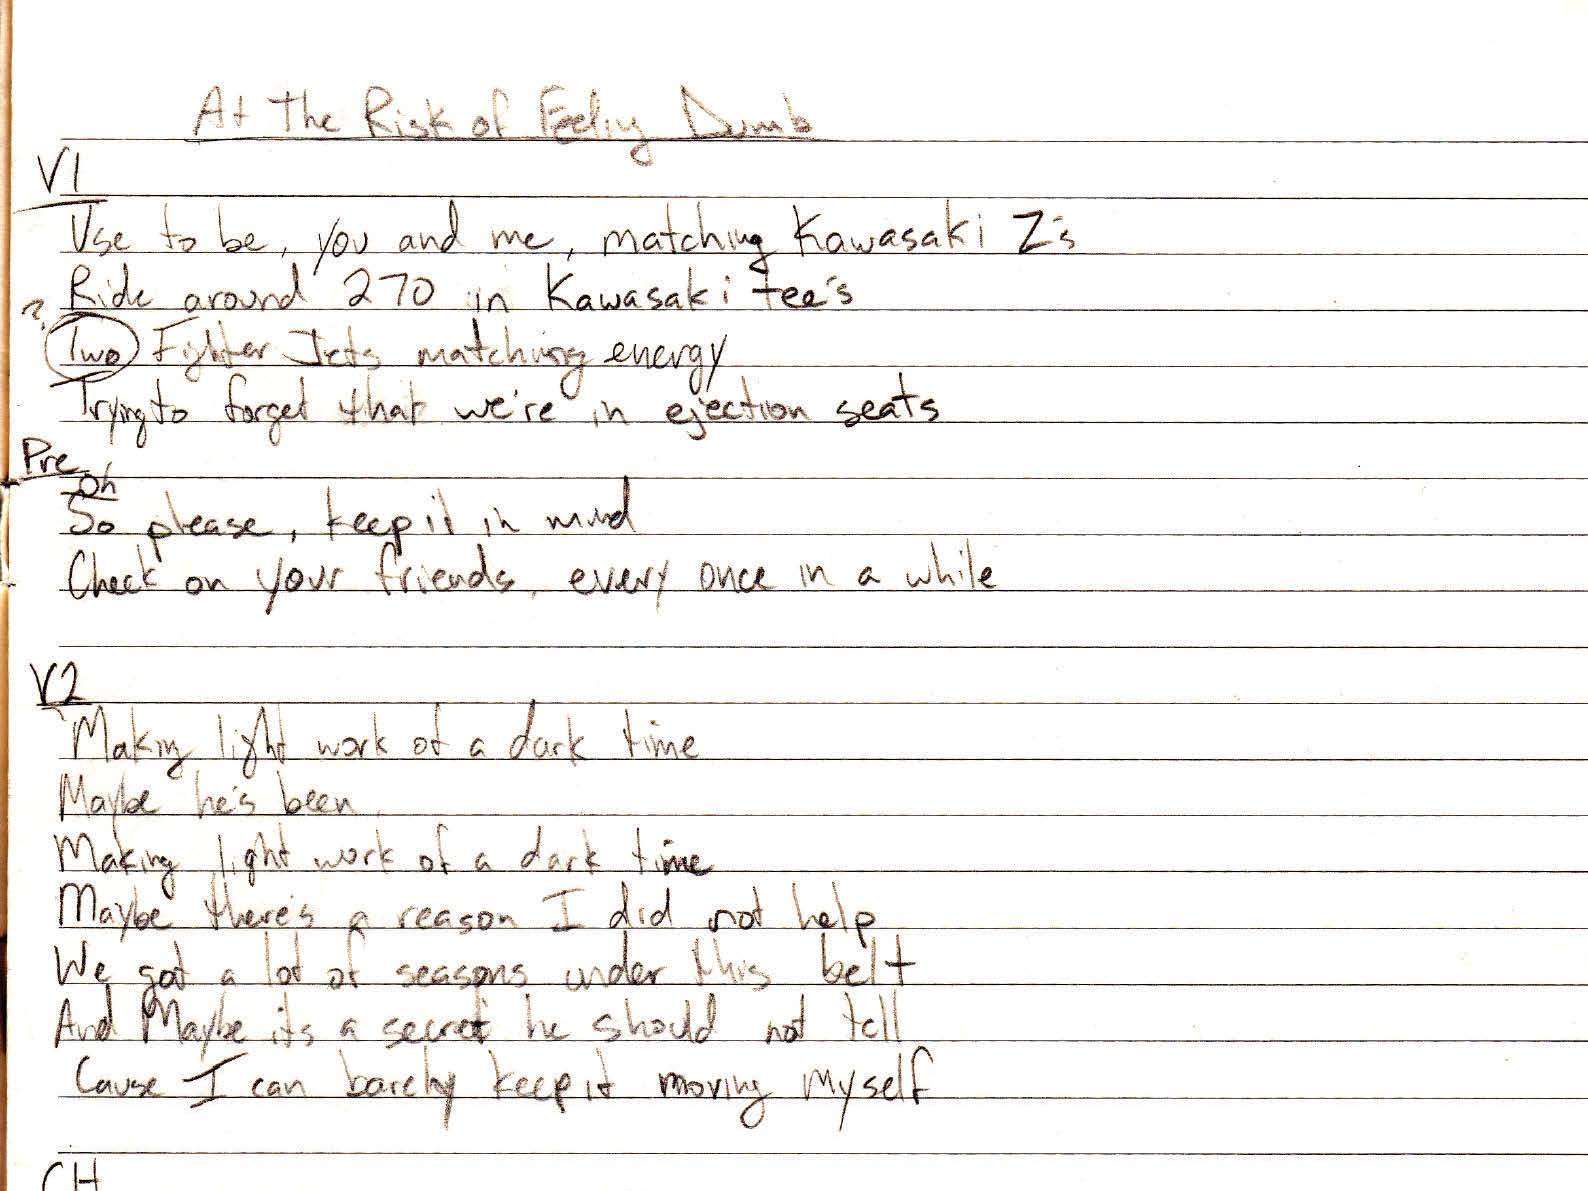 At The Risk of Feeling Dumb
V1
Use to be, you and me, matching Kawasaki Z's
Ride around 270 in Kawasaki tee's
?
Two Fighter Jets matching energy
Trying to forget that we're in ejection seats
Pre
Oh
So please, keep it in mind
Check on your friends, every once in a while
V2
Making light work of a dark time
Maybe he's been
Making light work of a dark time
Maybe there's a reason I did not help
We got a lot of seasons under this belt
And Maybe its a secret he should not tell
Cause I can barely keep it moving myself
CH